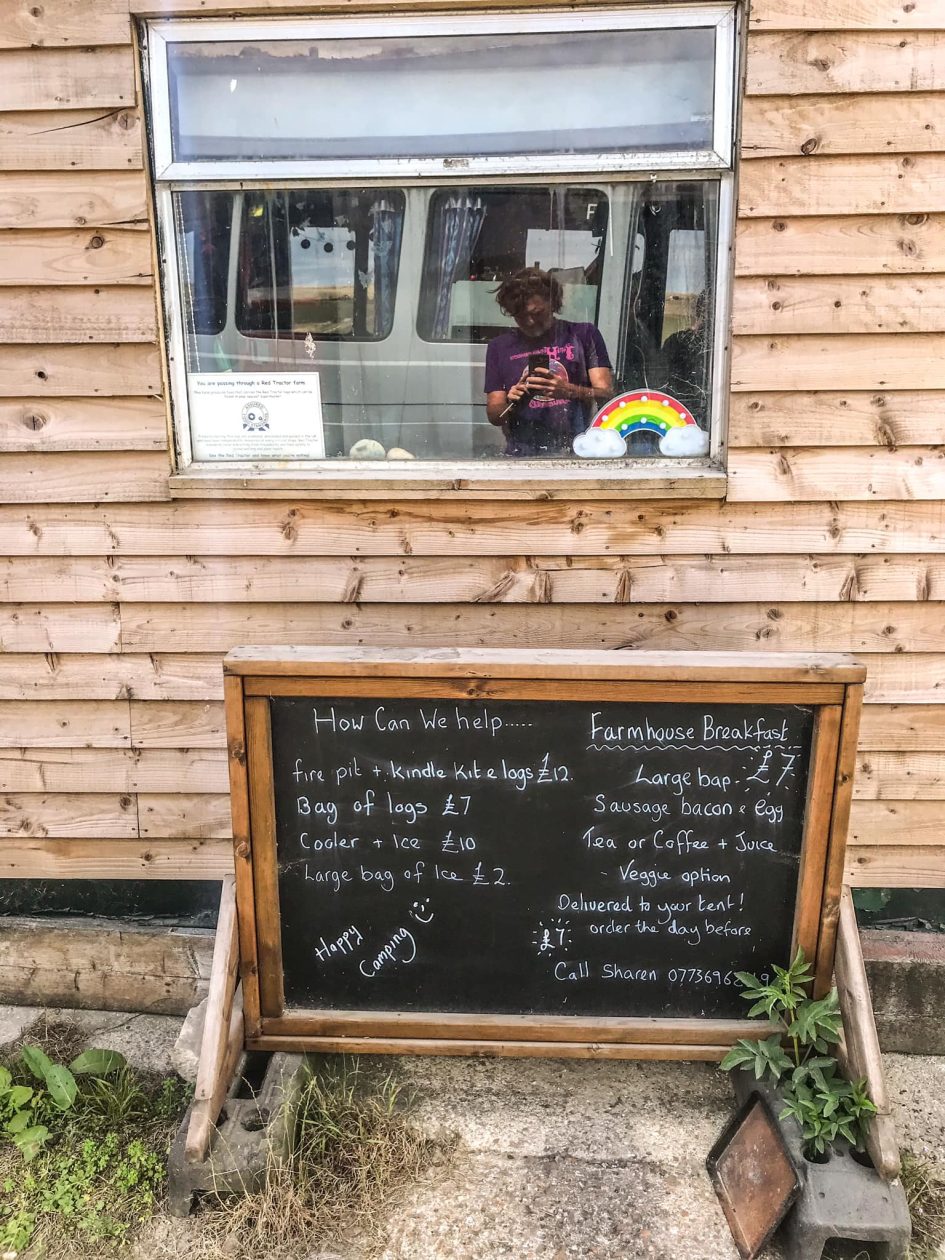 You are passing through a Red Tractor farm
See the Red Tractor and know what you're eating
F
How Can We help.....
fire pit + kindle kit e logs £12.
Bag of logs £7
Cooler + Ice £10
Large bag of Ice £2.
Happy
Camping
Farmhouse Breakfast
£7
Large bap
Sausage bacon & egg
Tea or Coffee + Juice
- Veggie option
Delivered to your tent!
order the day before
£7
Call Sharen